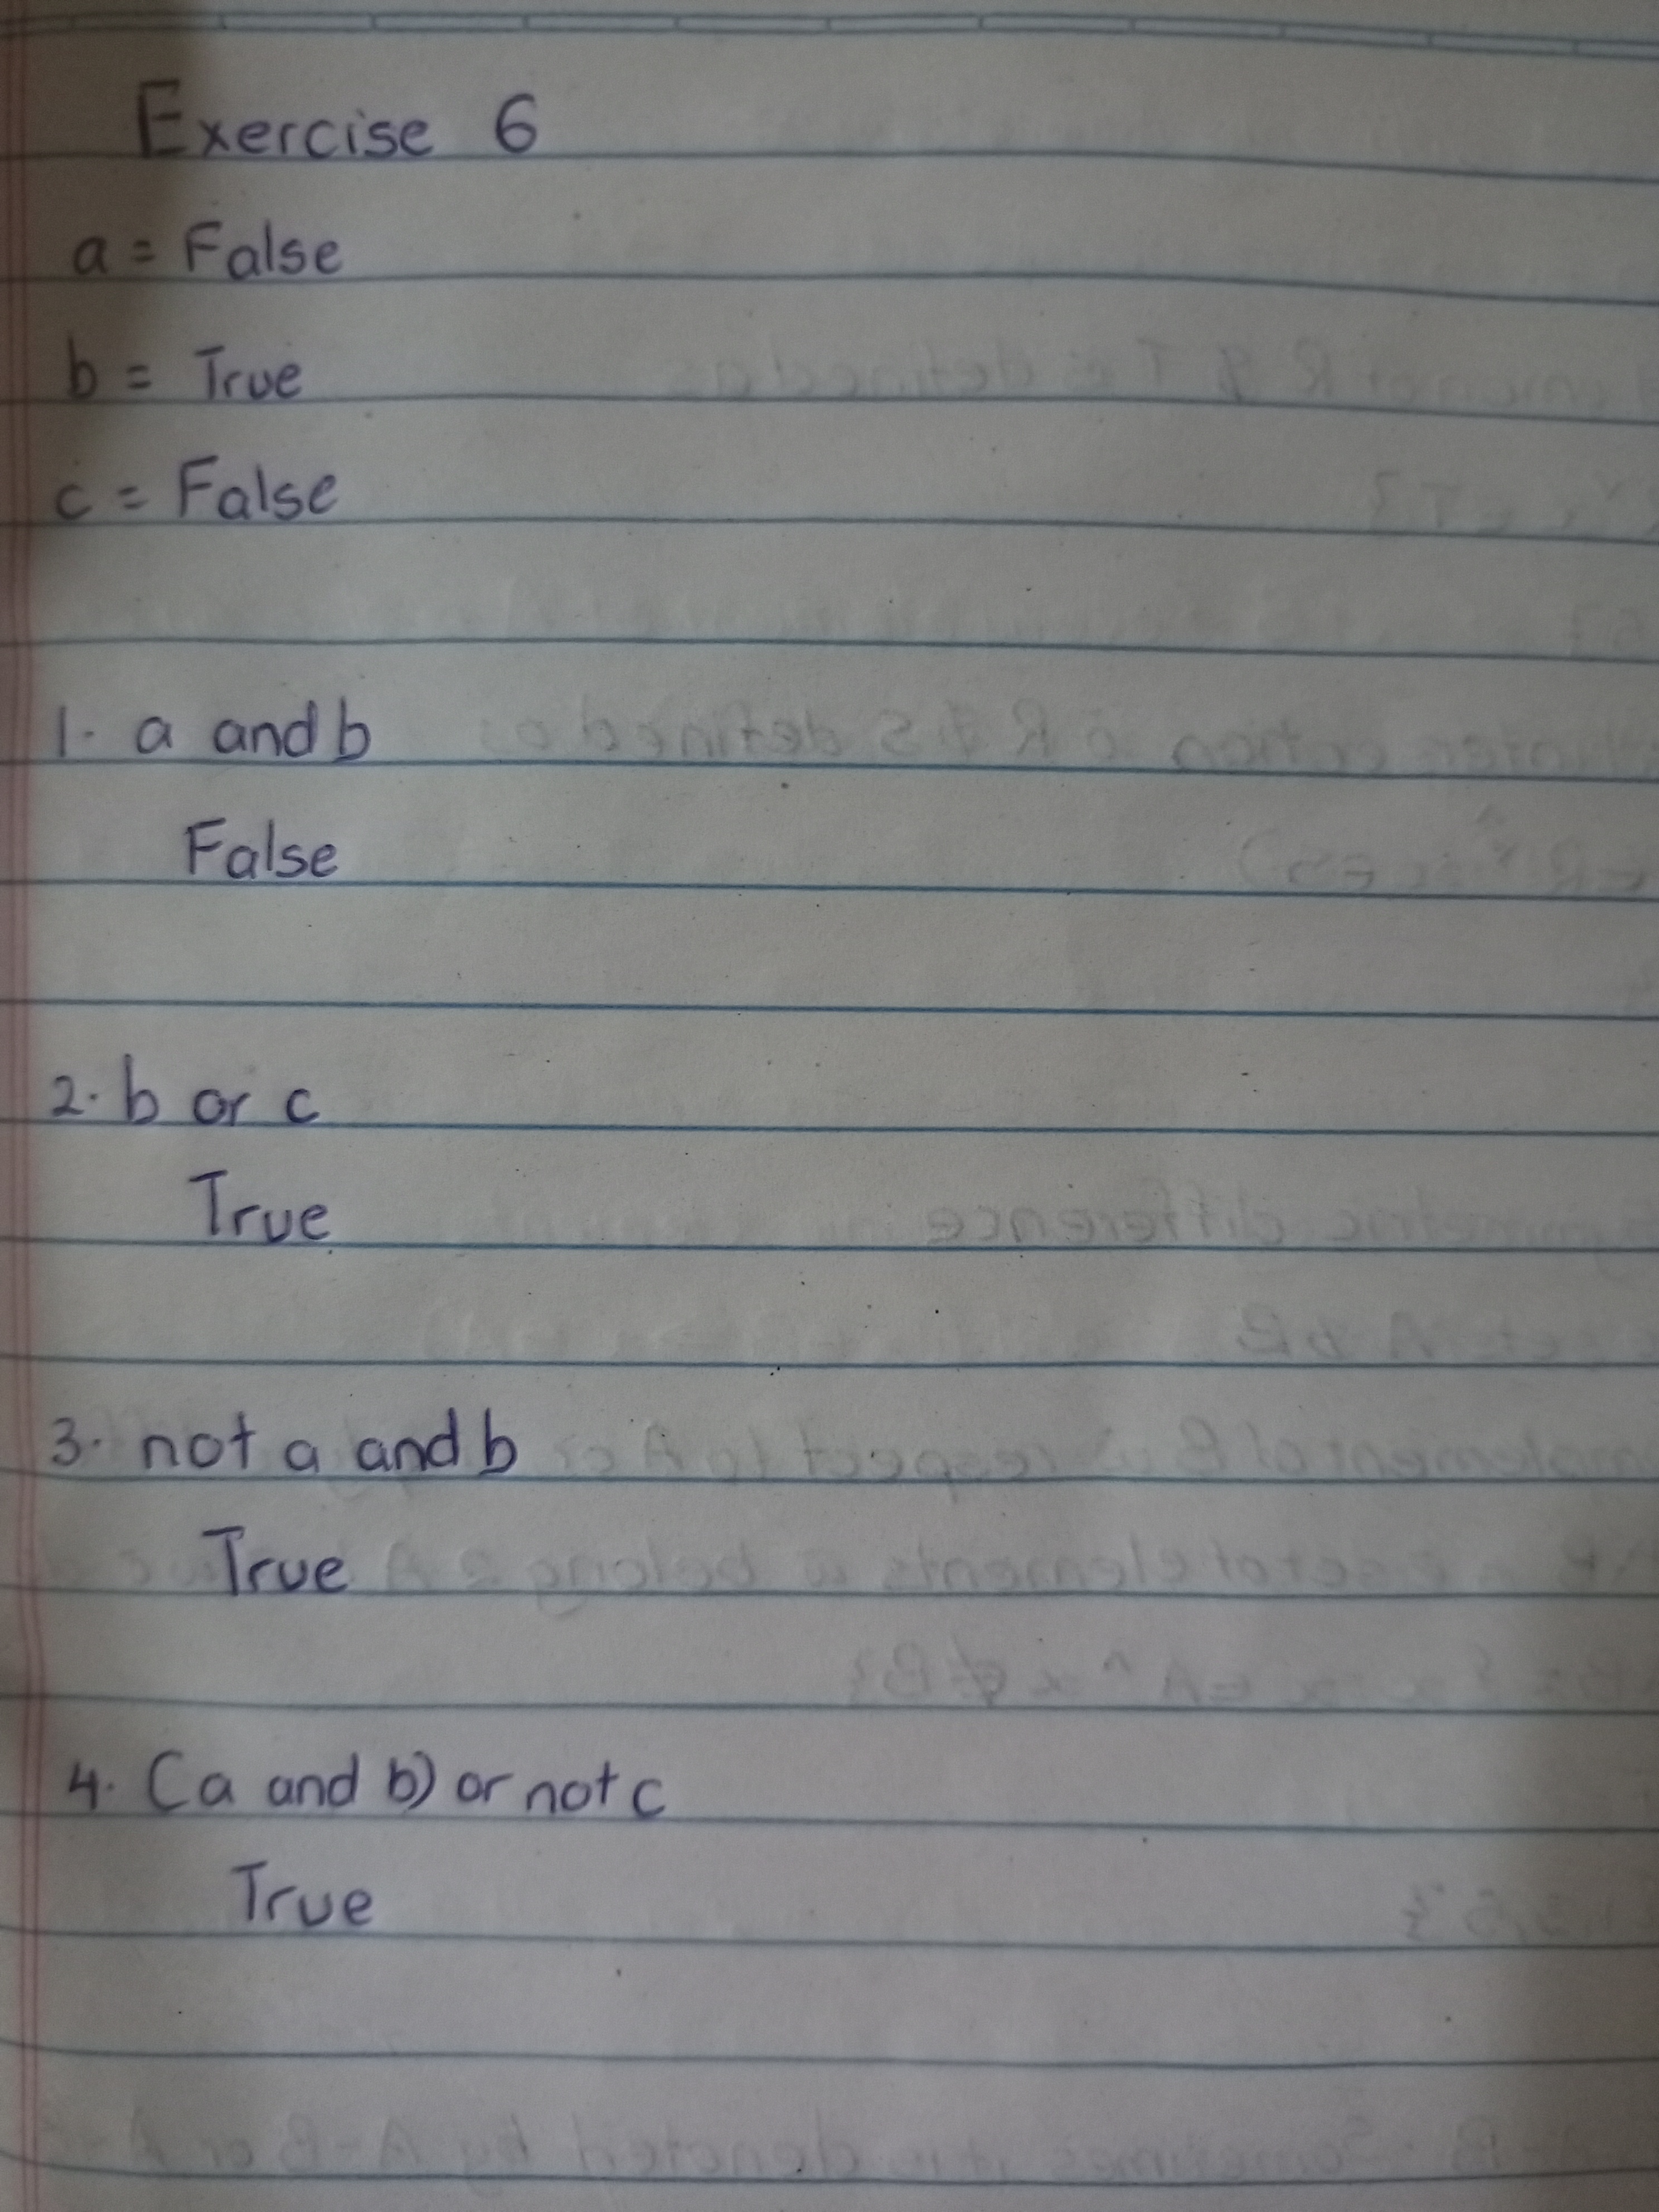 Exercise 6
a = False
b = True
c = False
1. a and b
False
2. b or c
True
3. not a and b
True
4. (a and b) or not c
True